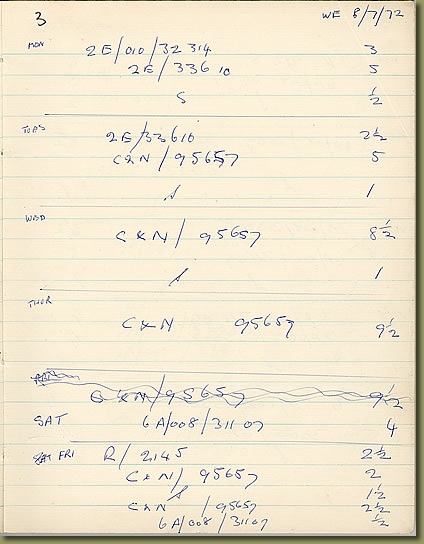 3 WE 8/7/72
MON 2E/010/32314 3
2E/33610 5
S ½
TUES 2E/33610 2½
C&N/95657 5
S 1
WED C&N/95657 8½
S 1
THUR
C&N 95657 9½
C&N/95657 9½
SAT 6A/008/31107 4
FRI R/2145 2½
C&N/95657 2
S 1½
C&N/95657 2½
6A/008/31107 ½